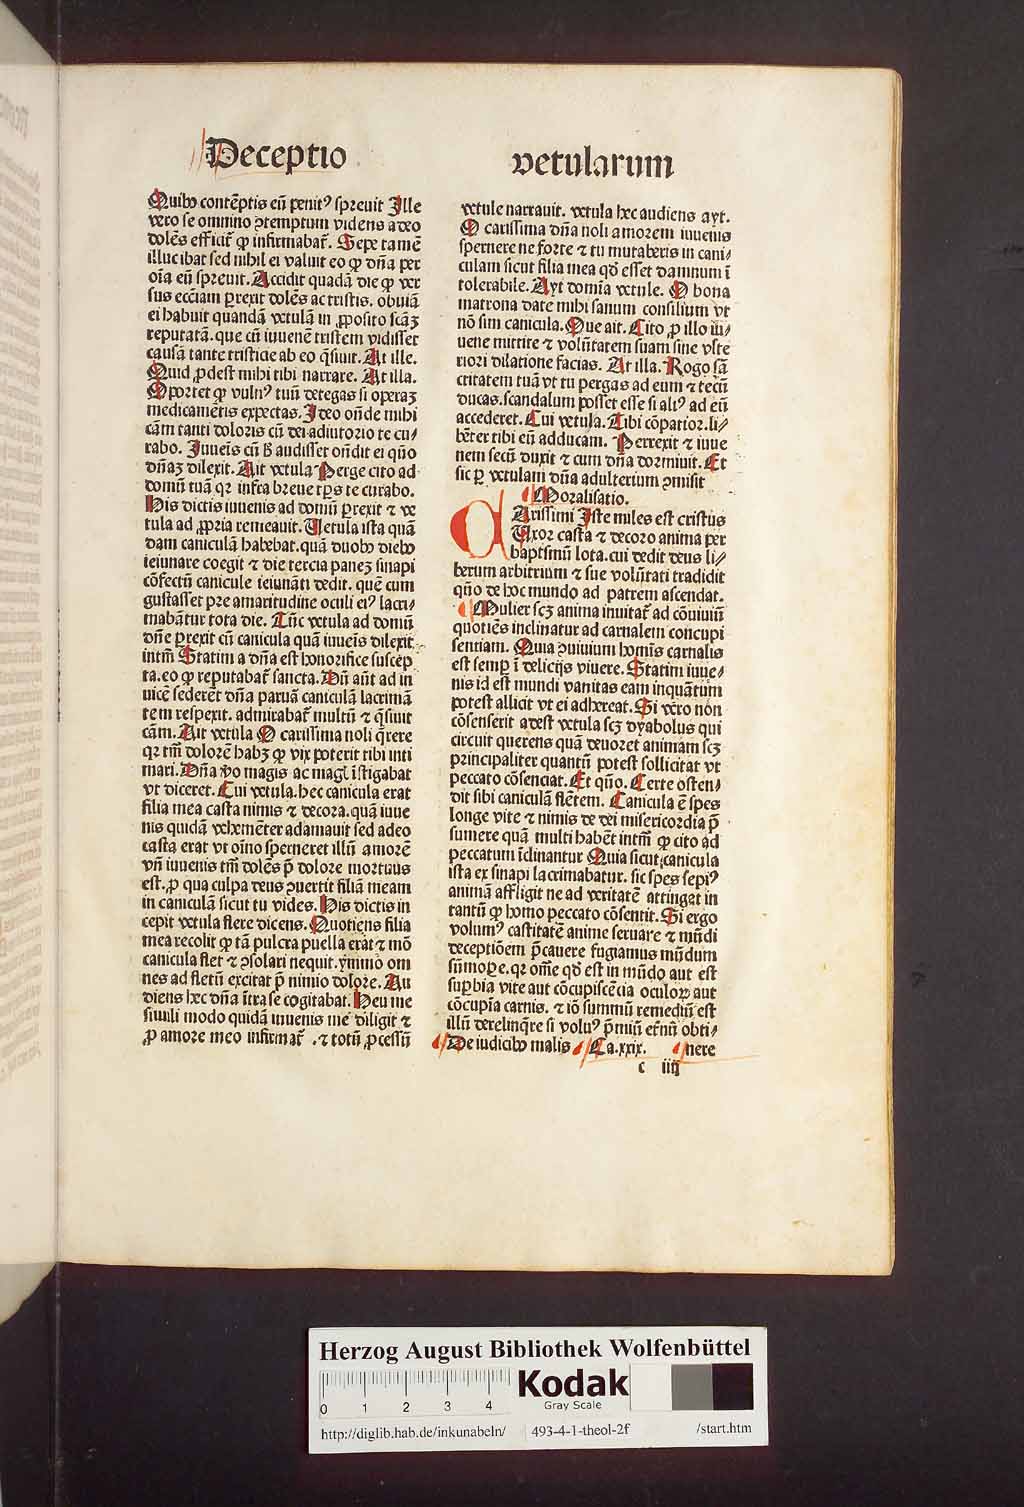 Deceptio
Quibꝰ contẽptis eũ penitꝰ spreuit Ille
vero se omnino ↄtemptum videns adeo
dolẽs efficit᷑ ꝙ infirmabat᷑. Sepe tamẽ
illuc ibat sed nihil ei valuit eo ꝙ dña per
oĩa eũ spreuit. Accidit quadã die ꝙ ver
sus eccĩam ꝑrexit dolẽs ac tristis. obuiã
ei habuit quandã vetulã in ꝓposito scãꝫ
reputatã. que cũ iuuenẽ tristem vidisset
causã tante tristicie ab eo q̃siuit. At ille.
Quid ꝓdest mihi tibi narrare. At illa.
Oportet ꝙ vulnꝰ tuũ detegas si operaꝫ
medicamẽtis expectas. Ideo oñde mihi
cãm tanti doloris cũ dei adiutorio te cu⸗
rabo. Iuueĩs cũ ħ audisset oñdit ei qũo
dñaꝫ dilexit. Ait vetula Perge cito ad
domũ tuã qꝛ infra breue tp̃s te curabo.
His dictis iuuenis ad domũ ꝑrexit ⁊ ve
tula ad ꝓpria remeauit. Uetula ista quã
dam caniculã habebat. quã duobꝰ diebꝰ
ieiunare coegit ⁊ die tercia paneꝫ sinapi
cõfectũ canicule ieiunãti dedit. quẽ cum
gustasset pre amaritudine oculi eiꝰ lacri⸗
mabãtur tota die. Tũc vetula ad domũ
dñe ꝑrexit cũ canicula quã iuueĩs dilexit
intm̃ Statim a dña est honorifice suscep
ta. eo ꝙ reputabat᷑ sancta. Dũ aũt ad in
uicẽ sederẽt dña paruã caniculã lacrimã
tem respexit. admirabat᷑ multũ ⁊ q̃siuit
cãm. Ait vetula O carissima noli q̃rere
qꝛ tm̃ dolorẽ habꝫ ꝙ vix poterit tibi inti
mari. Dña ṽo magis ac magĩ ĩstigabat
vt diceret. Cui vetula. hec canicula erat
filia mea casta nimis ⁊ decora. quã iuue
nis quidã vehemẽter adamauit sed adeo
casta erat vt oĩno sperneret illũ amorẽ
vñ iuuenis tm̃ dolẽs p̃ dolore mortuus
est. ꝓ qua culpa deus ↄuertit filiã meam
in caniculã sicut tu vides. His dictis in
cepit vetula flere dicens. Quotiens filia
mea recolit ꝙ tã pulcra puella erat ⁊ mõ
canicula flet ⁊ ↄsolari nequit. ymmo om
nes ad fletũ excitat p̃ nimio dolore. Au
diens hec dña ĩtra se cogitabat. Heu me
simili modo quidã iuuenis me diligit ⁊
ꝓ amore meo infirmat᷑ . ⁊ totũ ꝓcessũ
vetularum
vetule narrauit. vetula hec audiens ayt.
O carissima dña noli amorem iuuenis
spernere ne forte ⁊ tu mutaberis in cani⸗
culam sicut filia mea qđ esset damnum ĩ
tolerabile. Ayt domĩa vetule. O bona
matrona date mihi sanum consilium vt
nõ sim canicula. Que ait. Cito ꝓ illo iu⸗
uene mittite ⁊ volũtatem suam sine vlte
riori dilatione facias. At illa. Rogo sã
ctitatem tuã vt tu pergas ad eum ⁊ tecũ
ducas. scandalum posset esse si altꝰ ad eũ
accederet. Cui vetula. Tibi cõpatior. li⸗
bẽter tibi eũ adducam. Perrexit ⁊ iuue
nem secũ duxit ⁊ cum dña dormiuit. Et
sic ꝑ vetulam dña adulterium ↄmisit
Moralisatio.
Carissimi Iste miles est cristus
Uxor casta ⁊ decoro anima per
baptismũ lota. cui dedit deus li⸗
berum arbitrium ⁊ sue volũtati tradidit
qño de hoc mundo ad patrem ascendat.
Mulier scꝫ anima inuitat᷑ ad cõuiuiũ
quotiẽs inclinatur ad carnalem concupi
sentiam. Quia ↄuiuium homĩs carnalis
est semꝑ ĩ delicijs viuere. Statim iuue⸗
nis id est mundi vanitas eam inquãtum
potest allicit vt ei adhereat. Si vero non
cõsenserit adest vetula scꝫ dyabolus qui
circuit querens quã deuoret animam scꝫ
principaliter quantũ potest sollicitat vt
peccato cõsenciat. Et qũo. Certe osten⸗
dit sibi caniculã flẽtem. Canicula ẽ spes
longe vite ⁊ nimis de dei misericordia p̃
sumere quã multi habẽt intm̃ ꝙ cito ad
peccatum ĩclinantur Quia sicut canicula
ista ex sinapi lacrimabatur. sic spes sepiꝰ
animã affligit ne ad veritatẽ attingat in
tantũ ꝙ homo peccato cõsentit. Si ergo
volumꝰ castitatẽ anime seruare ⁊ mũdi
deceptiõem p̃cauere fugiamus mũdum
sũmopere. qꝛ om̃e qđ est in mũdo aut est
suꝑbia vite aut cõcupiscẽcia oculoꝝ aut
cõcupĩa carnis. ⁊ iõ summũ remediũ est
illũ derelinq̃re si volũꝰ p̃miũ et̃nũ obti⸗
De iudicibꝰ malis Ca.xxix. nere
c iiij
Herzog August Bibliothek Wolfenbüttel
0 1 2 3 4
Kodak
Gray Scale
http://diglib.hab.de/inkunabeln/ 493-4-1-theol-2f /start.htm